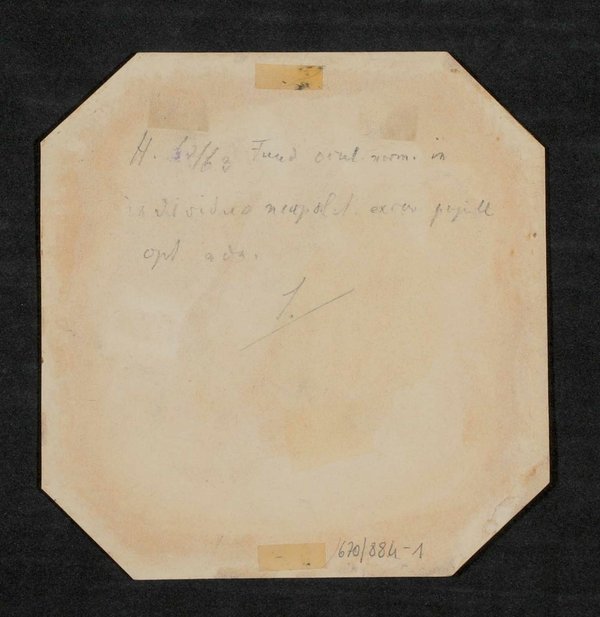 H. 62/63 Fund ocul. norm. in
individuo neapolit. excav papill
opt
1.
670/884-1